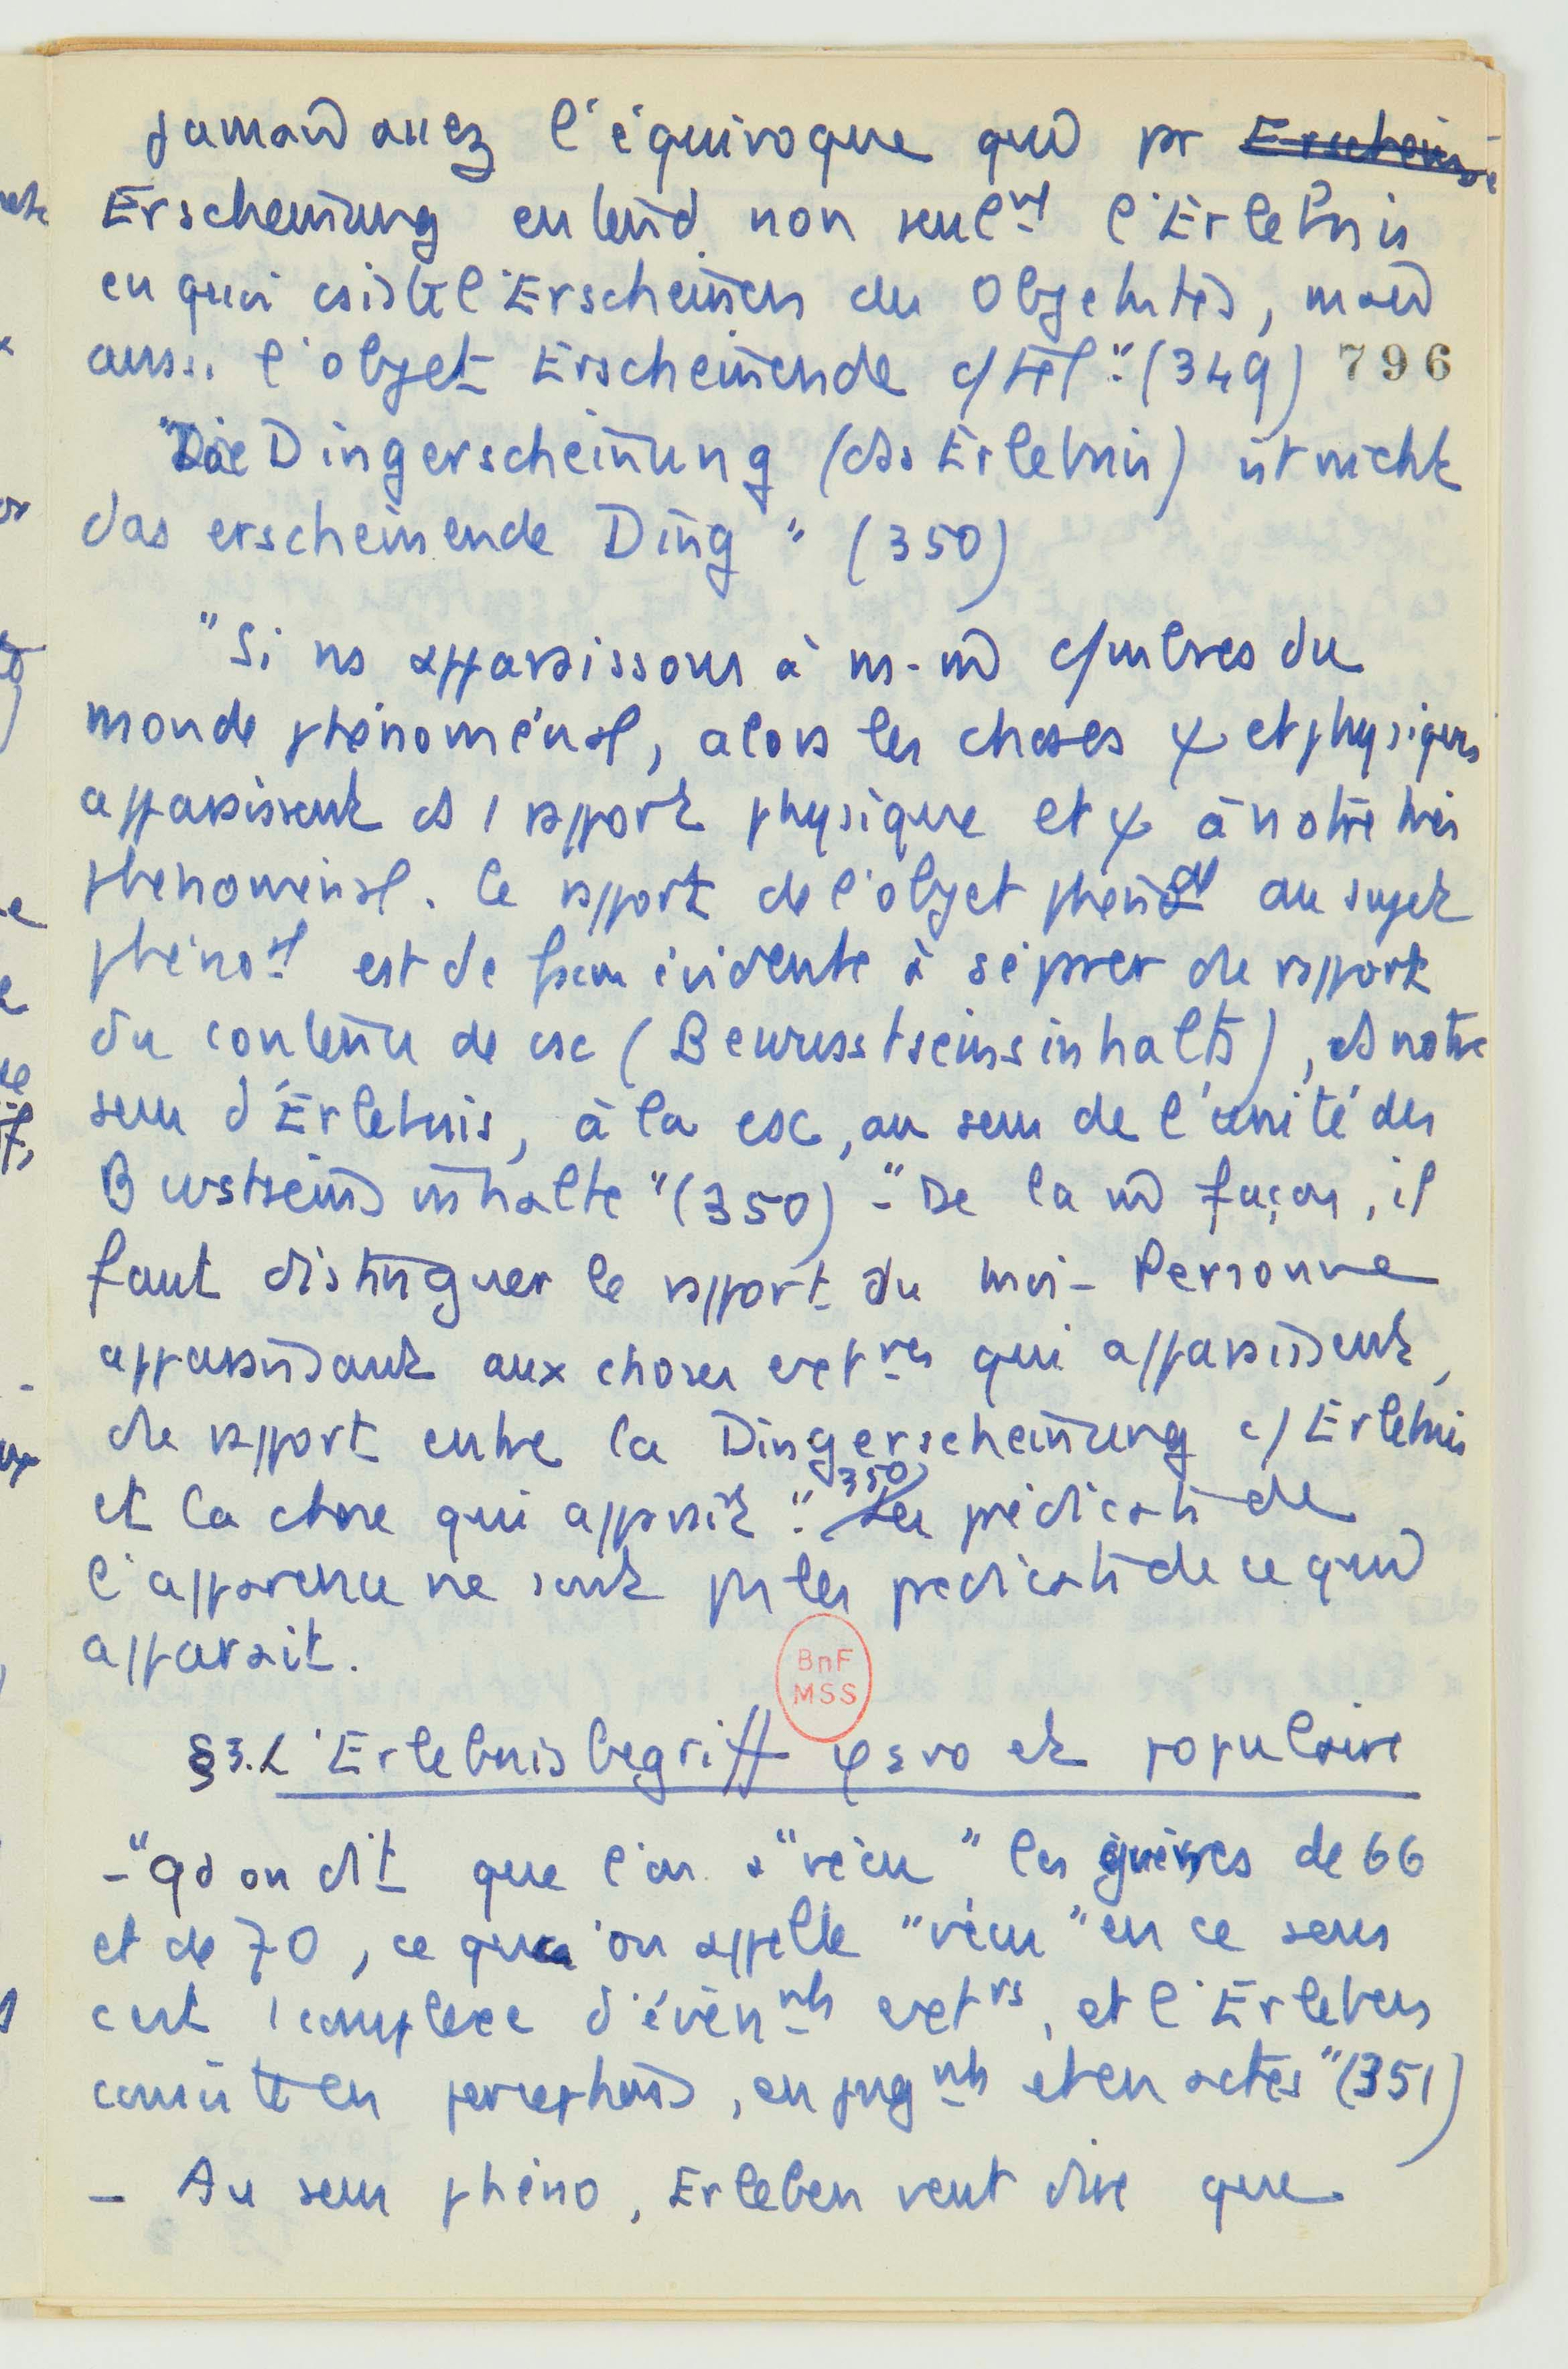 jamais assez l'équivoque qui pr Erscheinu
Erscheinung entend non seulnt l'Erlebnis
en quoi csiste l'Erscheinen des Objektes, mais
aussi l'objet Erscheinende c/ tel". (349) 796
"Die Dingerscheinung (das Erlebnis) ist nicht
das erscheinende Ding" (350)
"Si ns apparaissons à ns-m c/ mbres du
monde phénoménal, alors les choses ψ et physiques
apparaissent ds 1 rapport physique et ψ à notre moi
phénoménal. Ce rapport de l'objet phénoal au sujet
phénoal est de façon évidente à séparer du rapport
du contenu de csc (Bewusstseinsinhalts), ds notre
sens d'Erlebnis, à la csc, au sens de l'unité des
Bwstseinsinhalte" (350) - "De la m façon, il
faut distinguer le rapport du moi-Personne
apparaissant aux choses extres qui apparaissent,
du rapport entre la Dingerscheinung c/ Erlebnis
et la chose qui apparaît". 350) Les prédicats de
l'apparence ne sont ps les prédicats de ce qui
apparait.
BnF
MSS
§3. L'Erlebnisbegriff φ et populaire
- "Qd on dit que l'on a "vécu" les guerres de 66
et de 70, ce qu'on appelle "vécu" en ce sens
c'est 1 complexe d'évennts extrs, et l'Erleben
consiste en perceptions, en jugnts et en actes" (351)
- Au sens phéno, Erleben veut dire que